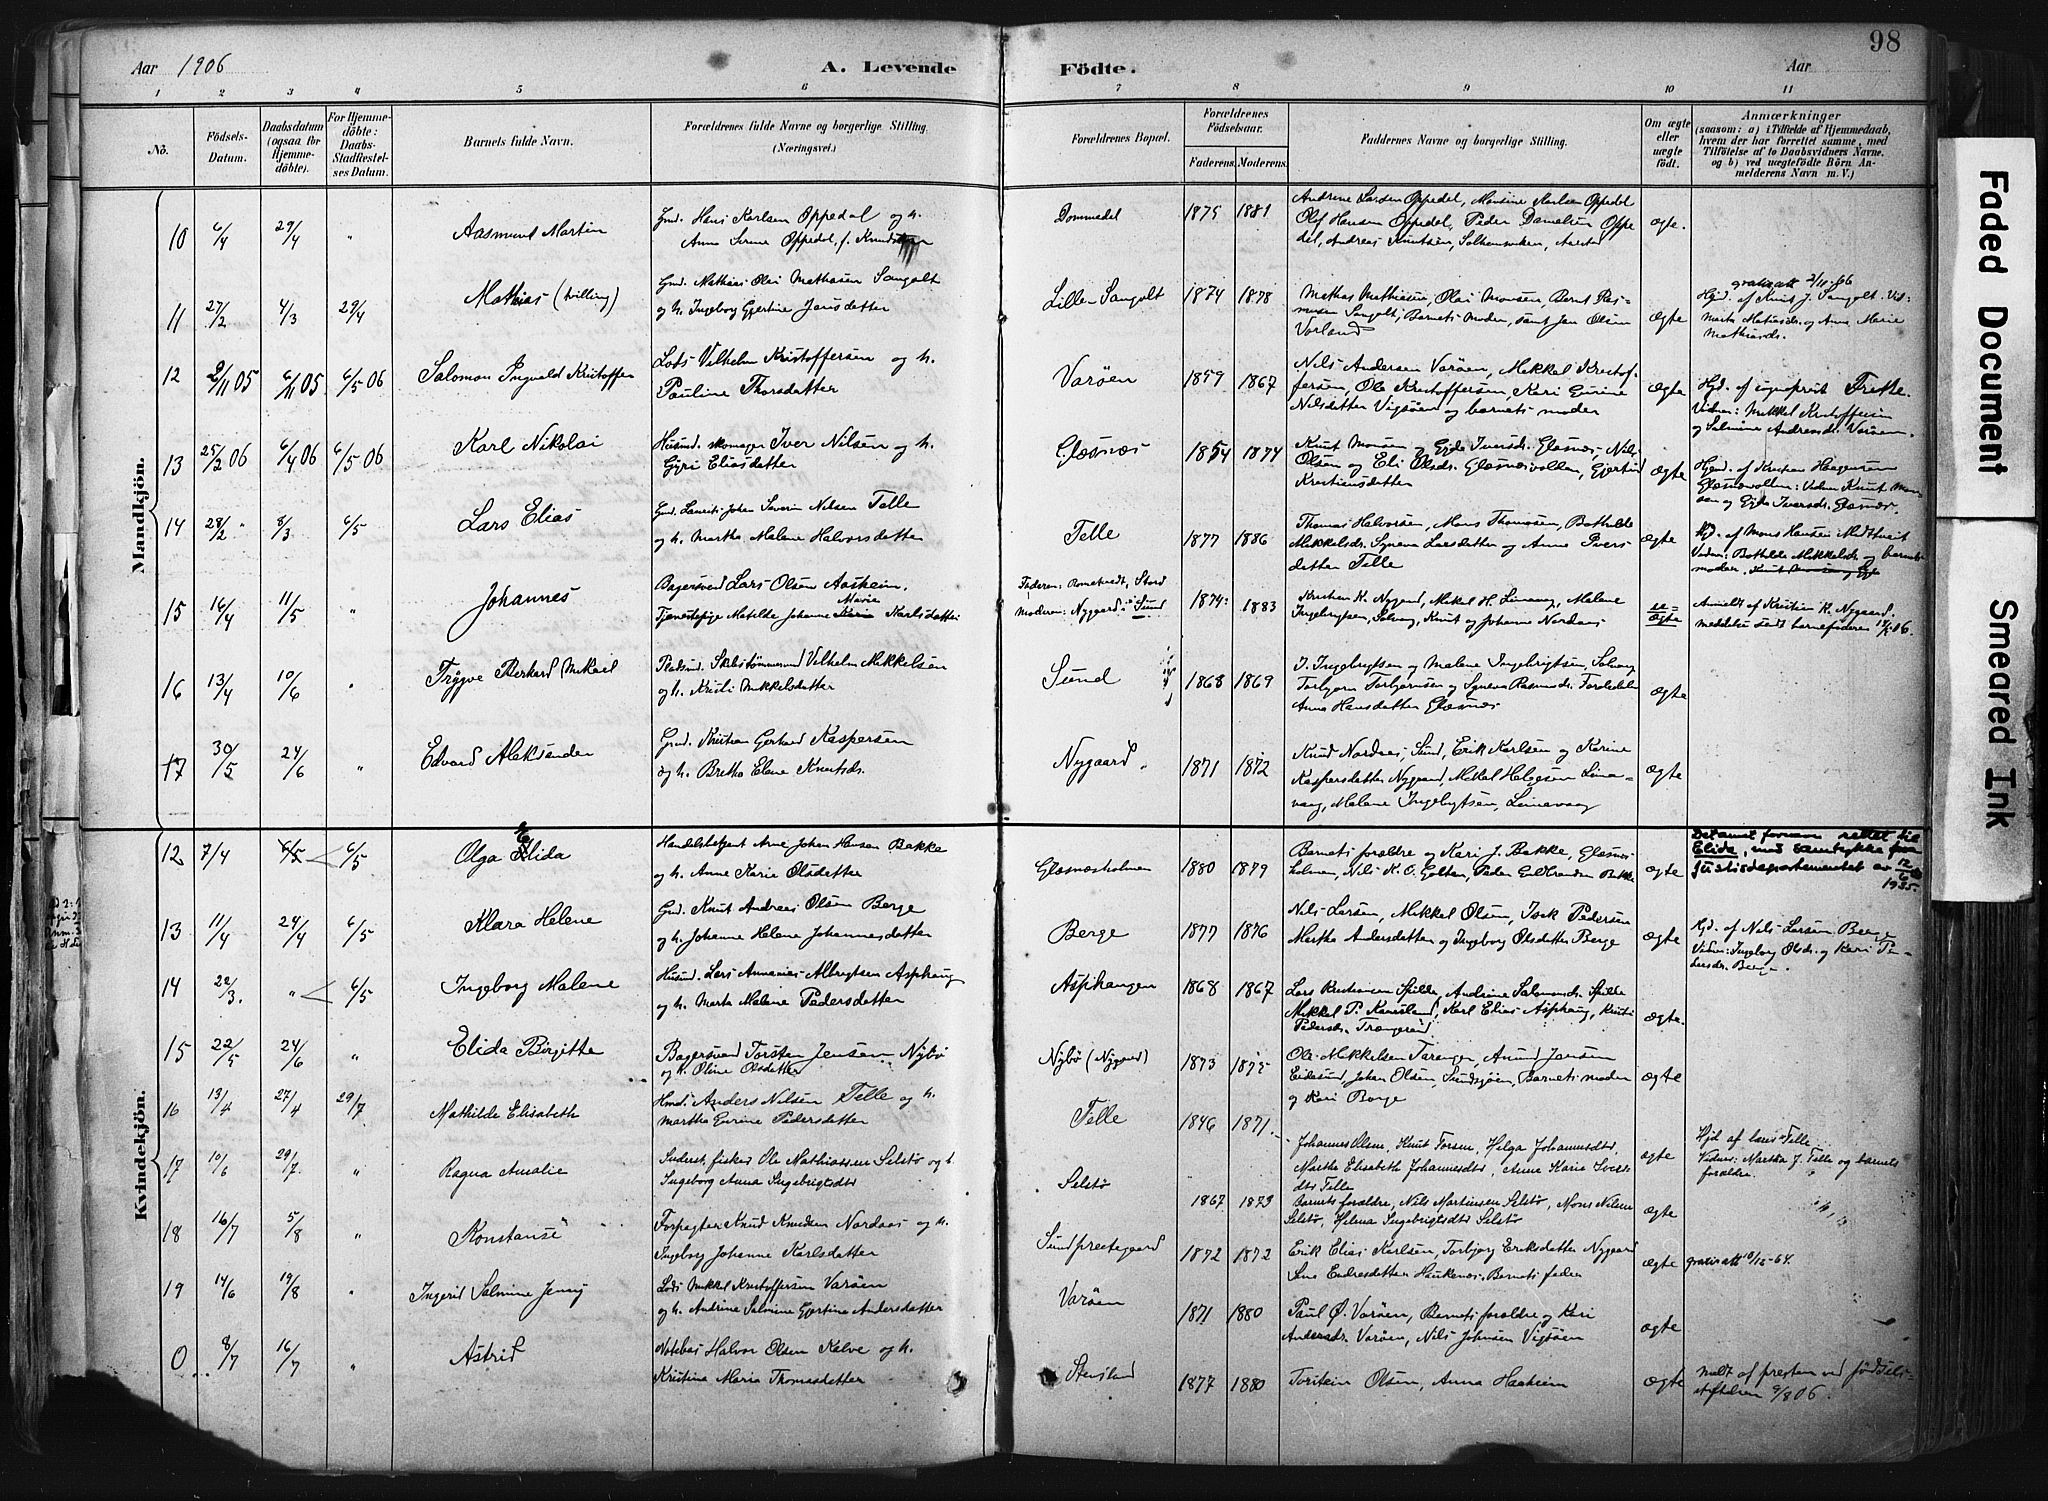 98
Aar 1906
A. Levende Födte.
Aar
1 2 3 4 5 6 7 8 9 10 11
No.
Födsels-Datum.
Daabsdatum (ogsaa for Hjemme-döbte).
For Hjemme-döbte: Daabs-Stadfæstel-ses Datum.
Barnets fulde Navn.
Forældrenes fulde Navne og borgerlige Stilling.
(Næringsvei.)
Forældrenes Bopæl.
Forældrenes Födselsaar.
Faderens. Moderens.
Faddernes Navne og borgerlige Stilling.
Om ægte eller uægte födt.
Anmærkninger
(saasom: a) i Tilfælde af Hjemmedaab,
hvem der har forrettet samme, med
Tilföielse af to Daabsvidners Navne.
og b) ved uægtefödte Börn An-
melderens Navn m. V.)
Mandkjön.
10 6/4 29/4 " Aasmund Martin
Gmd. Hans Karlsen Oppedal og h.
Anna Serine Oppedal, f.
Dommedal 1875 1881
Andrine Larsen Oppedal, Hansine Karlsen Oppedal
Olaf Hansen Oppedal, Peder Danielsen Oppe
del, Andreas Knutsen,
ægte.
11 27/2 4/3 29/4 Mathias (tvilling)
Gmd. Mathias Olai Mathiasen Sangolt
og h. Ingeborg Gjertine Jensdatter
Lille Sangolt 1874 1878
Mathias Mathiasen, Olai Monsen, Bernt Ras-
musen Sangolt, Barnets Moder, samt Jan Olsen
Vorland
ægte
gratisatt 2/11-66
Hjd. af Knut J. Sangolt. Vid:
Marta Matiasdr. og Anna Marie
Mathiasdr.
12 2/11 05 6/11 05 6/5 06 Salomon Ingvald Kristoffer
Lods Vilhelm Kristoffersen og h.
Pauline Thorsdatter
Varöen 1859 1867
Nils Andersen Varöen, Mekkel Kristof-
fersen, Ole Kristoffersen, Kari Gurine
Nilsdatter Vigsöen og barnets moder
ægte
Hjd. af sogneprest Frette.
Vidner: Mekkel Kristoffersen
og Salmine Andersdr. Varöen.
13 25/2 06 6/4 06 6/5 06 Karl Nikolai
Husmd. skomager Iver Nilsen og h.
Gjøri Eliasdatter
Glæsnæs 1854 1874
Knut Monsen og Eide Iversdr. Glæsnes, Nils
Olsen og Eli Olsdr. Glæsnesvollen, Gjertine
Kristiansdatter
ægte
Hjd. af Kristian Haagensen
Glæsnesvollen: Vidner Knut Mon-
sen og Iversdr. Glæsnes.
14 28/2 " 8/3 6/5 Lars Elias
Gmd. Lauritz Johan Severin Nilsen Telle
og h. Martha Malene Halvorsdatter
Telle 1877 1886
Thomas Halvorsen, Mons Thomasen, Bothilde
Mekkelsdr. Synneva Larsdatter og Anne Ivers-
datter Telle
ægte
Hjd. af Mons Hansen Midttveit
Vidner: Bothilde Mekkelsdr. og barnets
moder.
15 16/4 11/5 " Johannes
Bagersvend Lars Olsen Aasheim.
Tjenestepige Matilde Johanne Marie Karlsdatter
Faderen: Rometvedt, Stord
Moderen: Nygaard i Sund
1874: 1883
Kristian K. Nygaard, Mikal H. Limavag, Malene
Ingebrigtsen, Solvag, Knut og Johanne Nordaas
u-ægte
Anmeldt af Kristian K. Nygaard.
meddelse sendt barnefaderen
16 13/4 10/6 " Trygve Rerhard Mikael
Skibstømmermd Vilhelm Mikkelsen
og h. Kristi Mikkelsdatter
Sund 1868 1869
I. Ingebrigtsen og Malene Ingebrigtsen, Solvag
Torbjørn Torbjørnsen og Synneva Rasmusdr.
Anna Hansdatter Glæsnæs
ægte
17 30/5 24/6 " Edvard Aleksander
Gmd. Kristian Gerhard Kaspersen
og h. Britha Elene Knutsdr.
Nygaard. 1871 1872
Knud Nordaas, Sund, Erik Karlsen og Karine
Kaspersdatter Nygaard, Mikal Helgesen Lima-
vaag, Malene Ingebrigtsen, Limavaag
ægte
Kvindekjön.
12 7/4 6/5 6/5 Olga Elida
Handelsbetjent Arne Johan Hansen Bakke
og h. Anne Karie Olsdatter
Glæsnæsholmen 1880 1879
Barnets forældre og Kari J. Bakke, Glæsnes-
holmen, Nils K. O. Golten, Peder
ægte
Det annet fornavn rettet til
Elida, med samtykke fra
Justisdepartementet av 12/6 1935.
13 11/4 24/4 6/5 Klara Helene
Gmd. Knut Andreas Olsen Berge
og h. Johanne Helene Johannesdatter
Berge 1877 1876
Nils Larsen, Mikkel Olsen, Isak Pedersen
Martha Andersdatter og Ingeborg Olsdatter Berge
ægte
Hjd. af Nils Larsen Berge
Vidner: Ingeborg Olsdr. og Kari Pe-
dersdr. Berge.
14 22/3. " 6/5 Ingeborg Malene
Husmd. Lars Annanias Albregtsen Asphaug
og h. Marta Malene Pedersdatter
Asphaugen 1868 1867
Lars Kristiansen Spilde, Andrine Salomonsdr. Spilde
Mikkel P. Kausland, Karl Elias Asphaug, Kristi
Pedersdr.
ægte.
15 22/5 24/6 " Elida Birgitte
Bagersvend Torsten Jensen Nybö
og h. Oline Olsdatter
Nybö (Nygaard) 1873 1875
Ole Mikkelsen Taranger, Amund Jensen
Eidesund, Johan Olsen, Sundsjøen, Barnets moder
og Kari Berge
ægte
16 13/4 27/4 29/7 Mathilde Elisabeth
Husmd. Anders Nilsen Telle og h.
Martha Gurine Pedersdatter
Telle 1846 1871.
Johannes Olsen, Knut Torsen, Helga Johannesdtr,
Martha Elisabeth Johannesdtr, Anna Karia Ivers
dtr Telle
ægte
Hjd af Lars Telle
Vidner: Martha J. Telle og barnets
forældre.
17 10/6 29/7 " Ragna Amalie
Inderst, fisker Ole Mathiassen Selstø og h.
Ingeborg Anna Ingebrigtsdtr
Selstø 1867 1873
Barnets forældre, Nils Martinsen Selstø, Mons Nilsen
Selstø, Helena Ingebrigtsdtr Selstø
ægte
18 16/7 5/8 " Konstanse
Forpagter Knud Knudsen Nordaas og h.
Ingeborg Johanne Karlsdatter
Sund prestegaard 1872 1872
Erik Elias Karlsen, Torbjør Eriksdatter Nygaard
Lena Endresdatter Haukenes, Barnets fader
ægte gratisatt 10/12-64.
19 14/6 19/8 " Ingerid Salmine Jenny
Lods Mikkel Kristoffersen Varöen
og h. Andrina Salmine Gjertine Andersdatter
Varöen 1871 1880
Paul Ø. Varöen, Barnets forældre og Kari
Andersdr. Varöen, Nils Johnsen Vigsöen
ægte
0 8/7 16/7 " Astrid
Notebas Halvor Olsen Kalve og h.
Kristina Maria Thomasdatter
Stensland 1877 1880
Toristein Olsen, Anna Haaheim
ægte
Meldt af presten ved födsels-
stiftelsen 9/8 06.
Faded Document
Smeared Ink